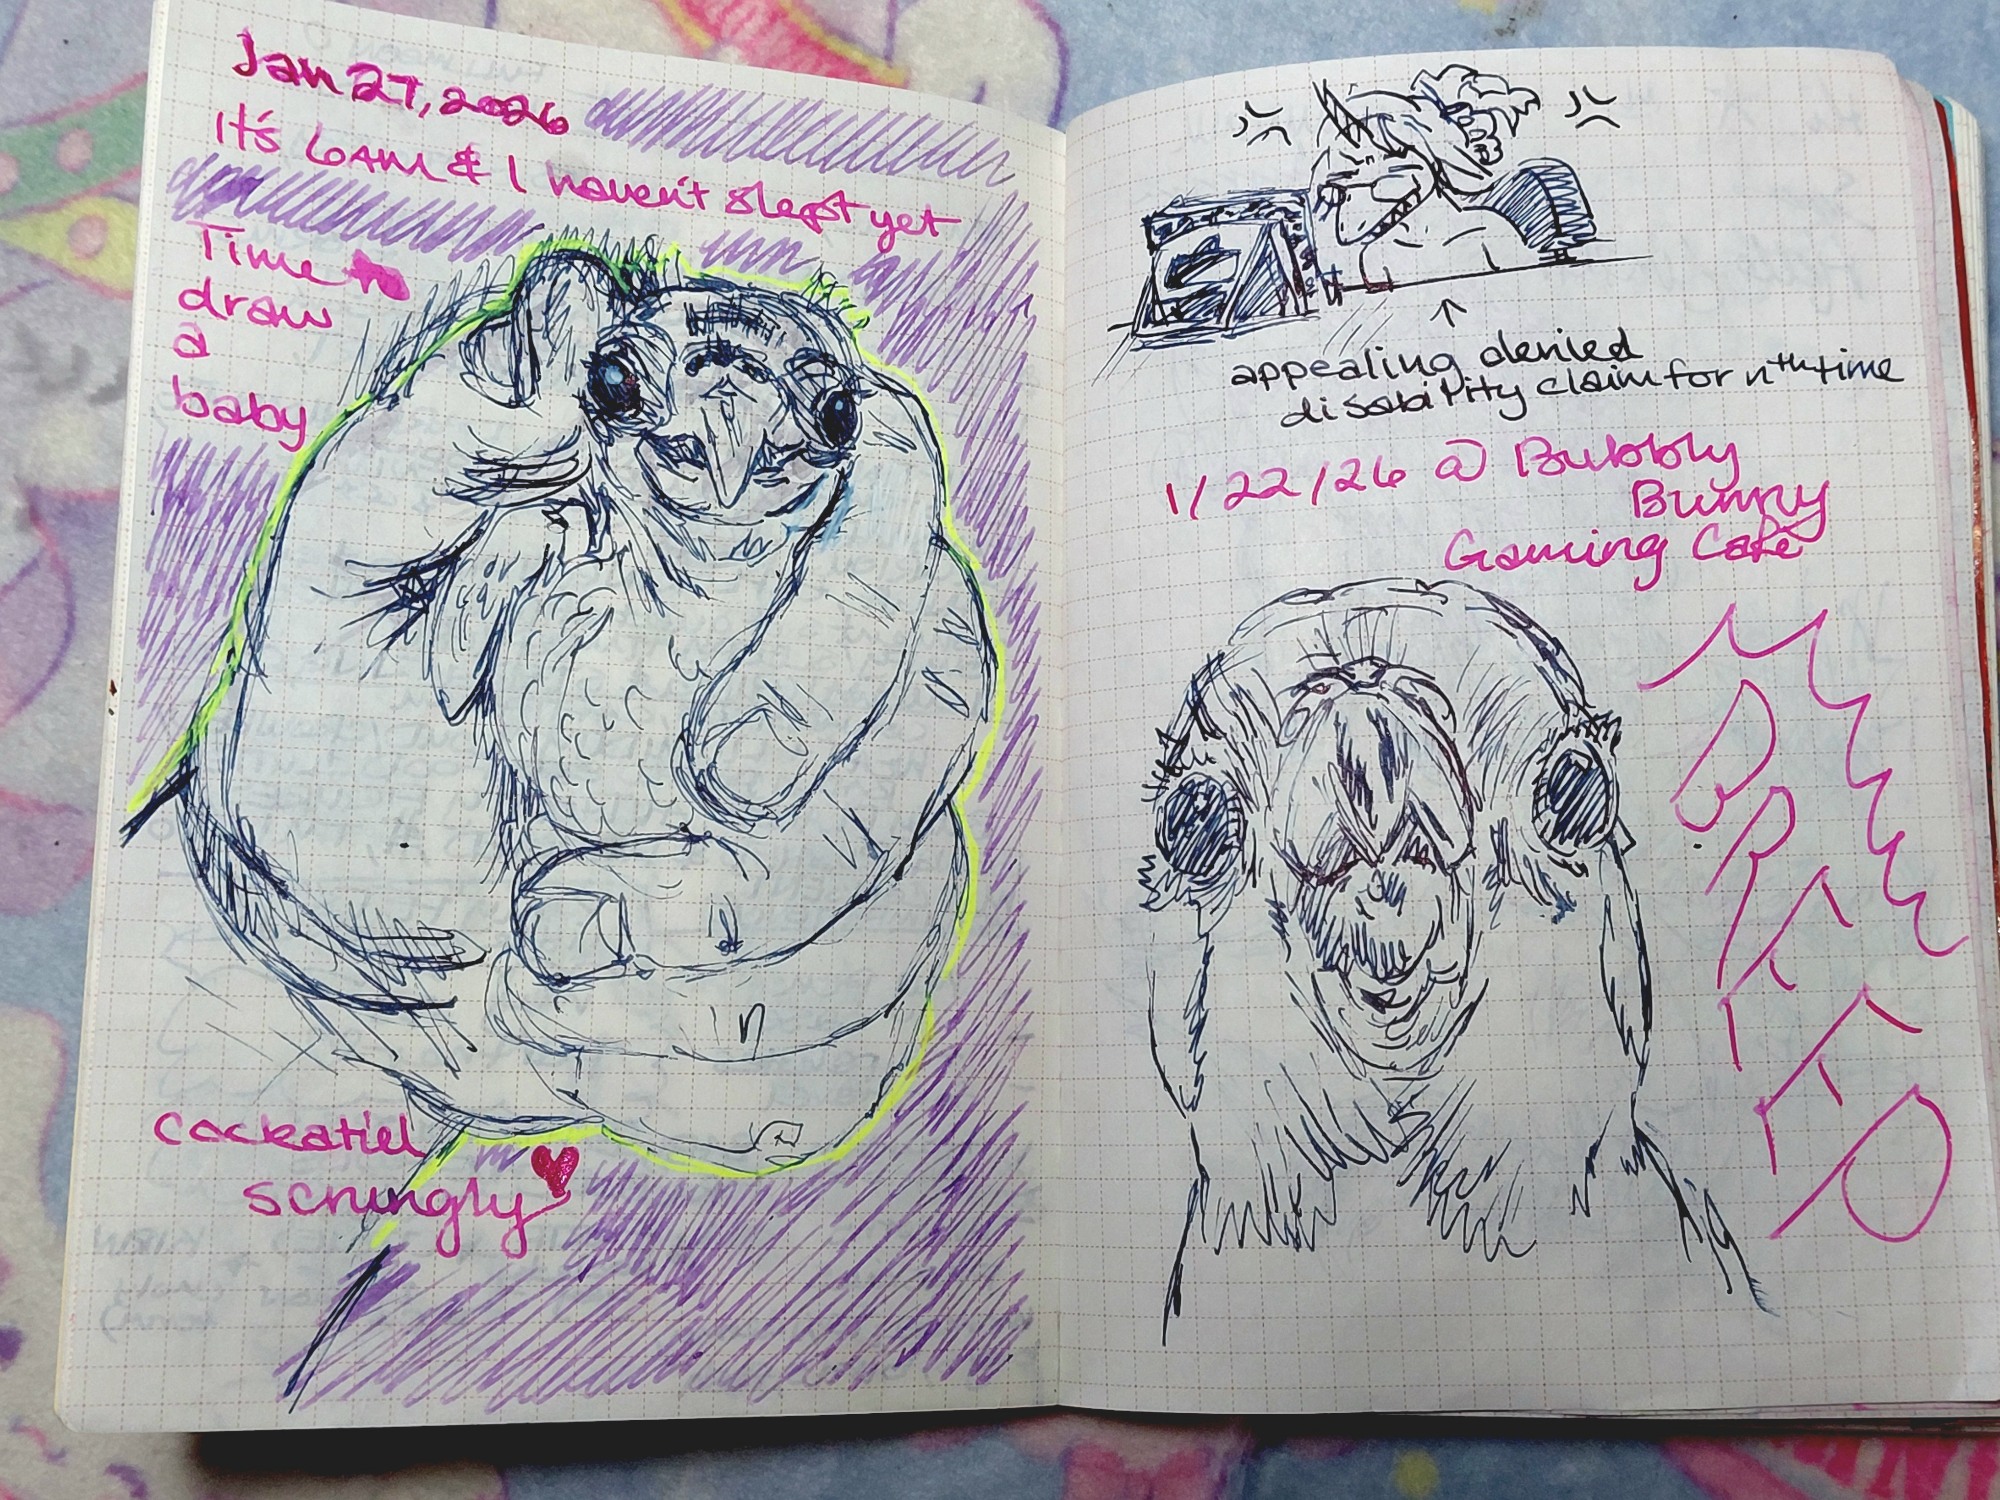 Jan 27, 2026
It's 6AM & I haven't slept yet
Time to
draw
a
baby
cockatiel
scrungly
appealing denied
disability claim for nth time
1/22/26 @ Bubbly
Bunny
Gaming Cafe